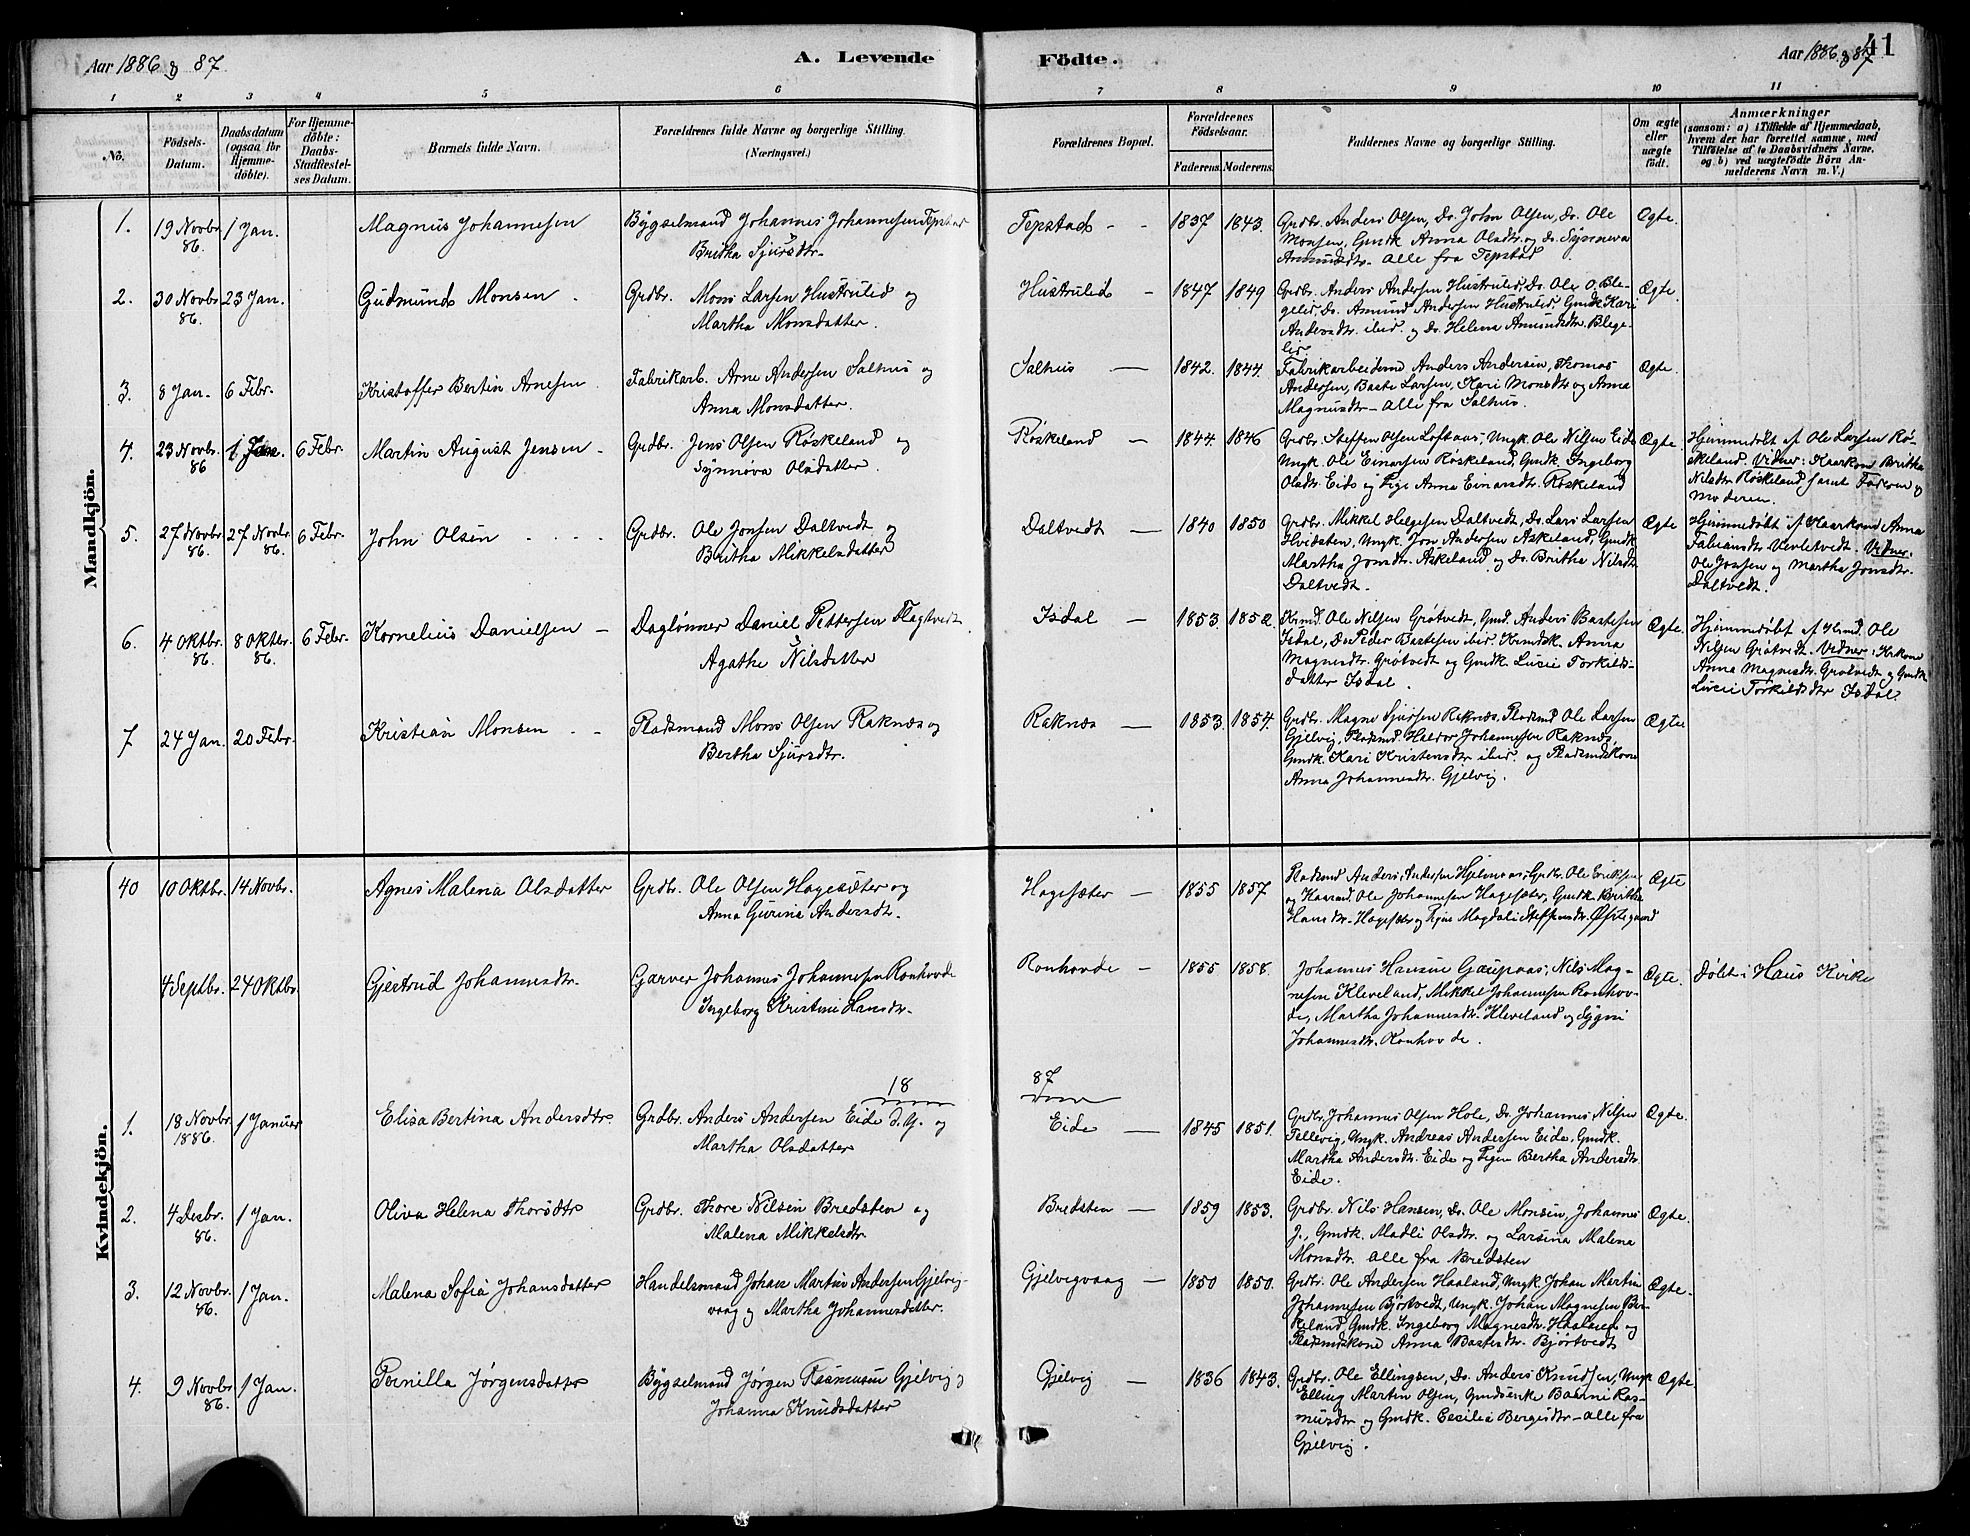 Aar 1886 & 87
A. Levende
Födte.
Aar 1886 & 87
41
1 2 3 4 5 6 7 8 9 10 11
No.
Födsels-
Datum.
Daabsdatum
(ogsaa for
Hjemme-
döbte).
For Hjemme-
döbte:
Daabs-
Stadfæstel-
ses Datum.
Barnets fulde Navn.
Forældrenes fulde Navne og borgerlige Stilling.
(Næringsvei.)
Forældrenes Bopæl.
Forældrenes
Födselsaar.
Faderens. Moderens.
Faddernes Navne og borgerlige Stilling.
Om ægte
eller
uægte
födt.
Anmærkninger
(saasom: a) i Tilfælde af Hjemmedaab,
hvem der har forrettet samme, med
Tilföielse af to Daabsvidners Navne,
og b) ved uægtefödte Börn An-
melderens Navn m. V.)
Mandkjön.
1. 19 Novbr. 86. 1 Jan. Magnus Johannesen
Bygselmand Johannes Johannesen Tepstad
Britha Sjursdtr.
Tepstad - - 1837 1843.
Grdbr. Anders Olsen, Do. John Olsen, Do. Ole
Monsen, Gmdk Anna Olsdtr. og do. Synneva
Amundsdtr. Alle fra Tepstad
Ægte.
2. 30 Novbr 86. 23 Jan. Gudmund Monsen.
Grdbr. Mons Larsen Hustruled og
Martha Monsdatter.
Hustruled - 1847 1849
Grdbr. Anders Andersen Hustruled, Do. Ole O. Ble-
gelid, Do. Amund Andersen Hustruled, Gmdk Kari
Andersdtr. ibid. og Do. Helena Amundsdtr. Blege-
lid
Ægte.
3. 8 Jan. 6 Febr. Kristoffer Bertin Arnesen.
Fabrikarb. Arne Andersen Salhus og
Anna Monsdatter.
Salhus - 1842. 1844.
Fabrikarbeiderne Anders Andersen, Thomas
Andersen, Baste Larsen, Kari Monsdtr og Anna
Magnusdtr - Alle fra Salhus.
Ægte.
4. 23 Novbr. 86 1 Jan. 6 Febr. Martin August Jensen -
Grdbr. Jens Olsen Röskeland og
Synnöva Olsdatter.
Röskeland - 1844. 1846
Grdbr. Steffen Olsen Loftaas, Ungk. Ole Nilsen Eide
Ungk. Ole Einarsen Röskeland, Gmdk. Ingeborg
Olsdtr. Eide og Pige Anna Einarsdtr. Röskeland
Ægte.
Hjemmedöbt af Ole Larsen Rö-
skeland. Vidner: Kaarkone Britha
Nilsdtr Röskeland samt Faderen og
Moderen.
5. 27 Novbr 86. 27 Novbr. 86. 6 Febr. John Olsen - - -
Grdbr. Ole Jonsen Daltvedt og
Britha Mikkelsdatter
Daltvedt - 1840 1850
Grdbr. Mikkel Helgesen Daltvedt, Do. Lars Larsen
Hvidsten, Ungk. Jon Andersen Askeland, Gmdk
Martha Jonsdtr. Askeland og Do. Britha Nilsdtr
Daltvedt.
Ægte
Hjemmedöbt af Kaarkone Anna
Fabiansdtr Vervletvedt. Vidner:
Ole Jonsen og Martha Jonsdtr.
Daltvedt.
6. 4 Oktbr. 86. 8 Oktbr. 86. 6 Febr. Kornelius Danielsen -
Daglönner Daniel Pettersen Flagtvedt
Agathe Nilsdatter
Isdal - 1853. 1852.
Krmd. Ole Nilsen Grötvedt, Gmd. Anders Bastesen
Isdal, Do Peder Bastesen ibid. Krmdsk. Anna
Magnesdtr. Grötvedt og Gmdk. Lusie Torkilds-
datter Isdal.
Ægte.
Hjemmedöbt af Krmd. Ole
Nilsen Grötvedt. Vidner: Krkone
Anna Magnesdtr. Grötvedt og Gmdk
Lusie Torkildsdtr Isdal
7 24 Jan. 20 Febr. Kristian Monsen - -
Pladsmand Mons Olsen Raknæs og
Bertha Sjursdtr.
Raknæs - 1853. 1854.
Grdbr. Magne Sjursen Raknæs, Pladsmd Ole Larsen
Gjelvig, Pladsmd. Haldor Johannesen Raknæs,
Gmdk. Kari Kristensdtr ibid. og Pladsmdskone
Anna Johannesdtr. Gjelvig.
Ægte
Kvindekjön.
40 10 Oktbr. 14 Novbr. Agnes Malena Olsdatter
Grdbr. Ole Olsen Hagesæter og
Anna Gurina Andersdtr.
Hagesæter - 1855 1857.
Pladsmd Anders Andersen Hjelmaas, Grdbr. Ole Eriksen
og Kaarmd. Ole Johannesen Hagesæter, Gmdk Britha
Hansdtr. Hagesæter og Pigen Magdali Steffensdtr. Östegaard
Ægte
4 Septbr. 24 Oktbr. Gjertrud Johannesdtr.
Garver Johannes Johannesen Ronhovde
Ingeborg Kristine Hansdtr.
Ronhovde - 1855 1858.
Johannes Hansen Gaupaas, Nils Mag-
nesen Kleveland, Mikkel Johannesen Ronhov-
de, Martha Johannesdtr. Kleveland og Sygni
Johannesdtr. Ronhovde.
Ægte.
Döbt i Haus Kirke
18 87
1. 18 Novbr. 1886. 1 Januar Elisa Bertina Andersdtr.
Grdbr. Anders Andersen Eide d.y. og
Martha Olsdatter
Eide - 1845 1851.
Grdbr. Johannes Olsen Hole, Do. Johannes Nilsen
Tellevig, Ungk. Andreas Andersen Eide, Gmdk.
Martha Andersdtr. Eide og Pigen Bertha Andersdtr.
Eide.
Ægte.
2. 4 Desbr. 86. 1 Jan. Oliva Helena Thorsdtr
Grdbr. Thore Nilsen Bredsten og
Malena Mikkelsdtr.
Bredsten - 1859 1853.
Grdbr. Nils Hansen, Do. Ole Monsen, Johannes
J., Gmdk. Madli Olsdtr. og Larsina Malena
Monsdtr. Alle fra Bredsten
Ægte.
3. 12 Novbr. 86. 1 Jan. Malena Sofia Johansdatter
Handelsmand Johan Martin Andersen Gjelvig-
vaag og Martha Johannesdatter.
Gjelvigvaag - 1850 1850.
Grdbr. Ole Andersen Haaland, Ungk. Johan Martin
Johannesen Bjørtvedt, Ungk. Johan Magnesen Bir-
keland, Gmdk. Ingeborg Magnesdtr. Haaland og
Pladsmdskone Anna Bastesdtr. Bjørtvedt
Ægte.
4. 9 Novbr 86. 1 Jan. Pernilla Jörgensdatter
Bygselmand Jörgen Rasmusen Gjelvig og
Johanna Knudsdatter
Gjelvig - 1836 1843.
Grdbr. Ole Ellingsen, Do. Anders Knudsen, Ungk
Elling Martin Olsen, Gmdsenke Barni Ras-
musdtr og Gmdk. Cecilia Bergesdtr - alle fra
Gjelvig.
Ægte.